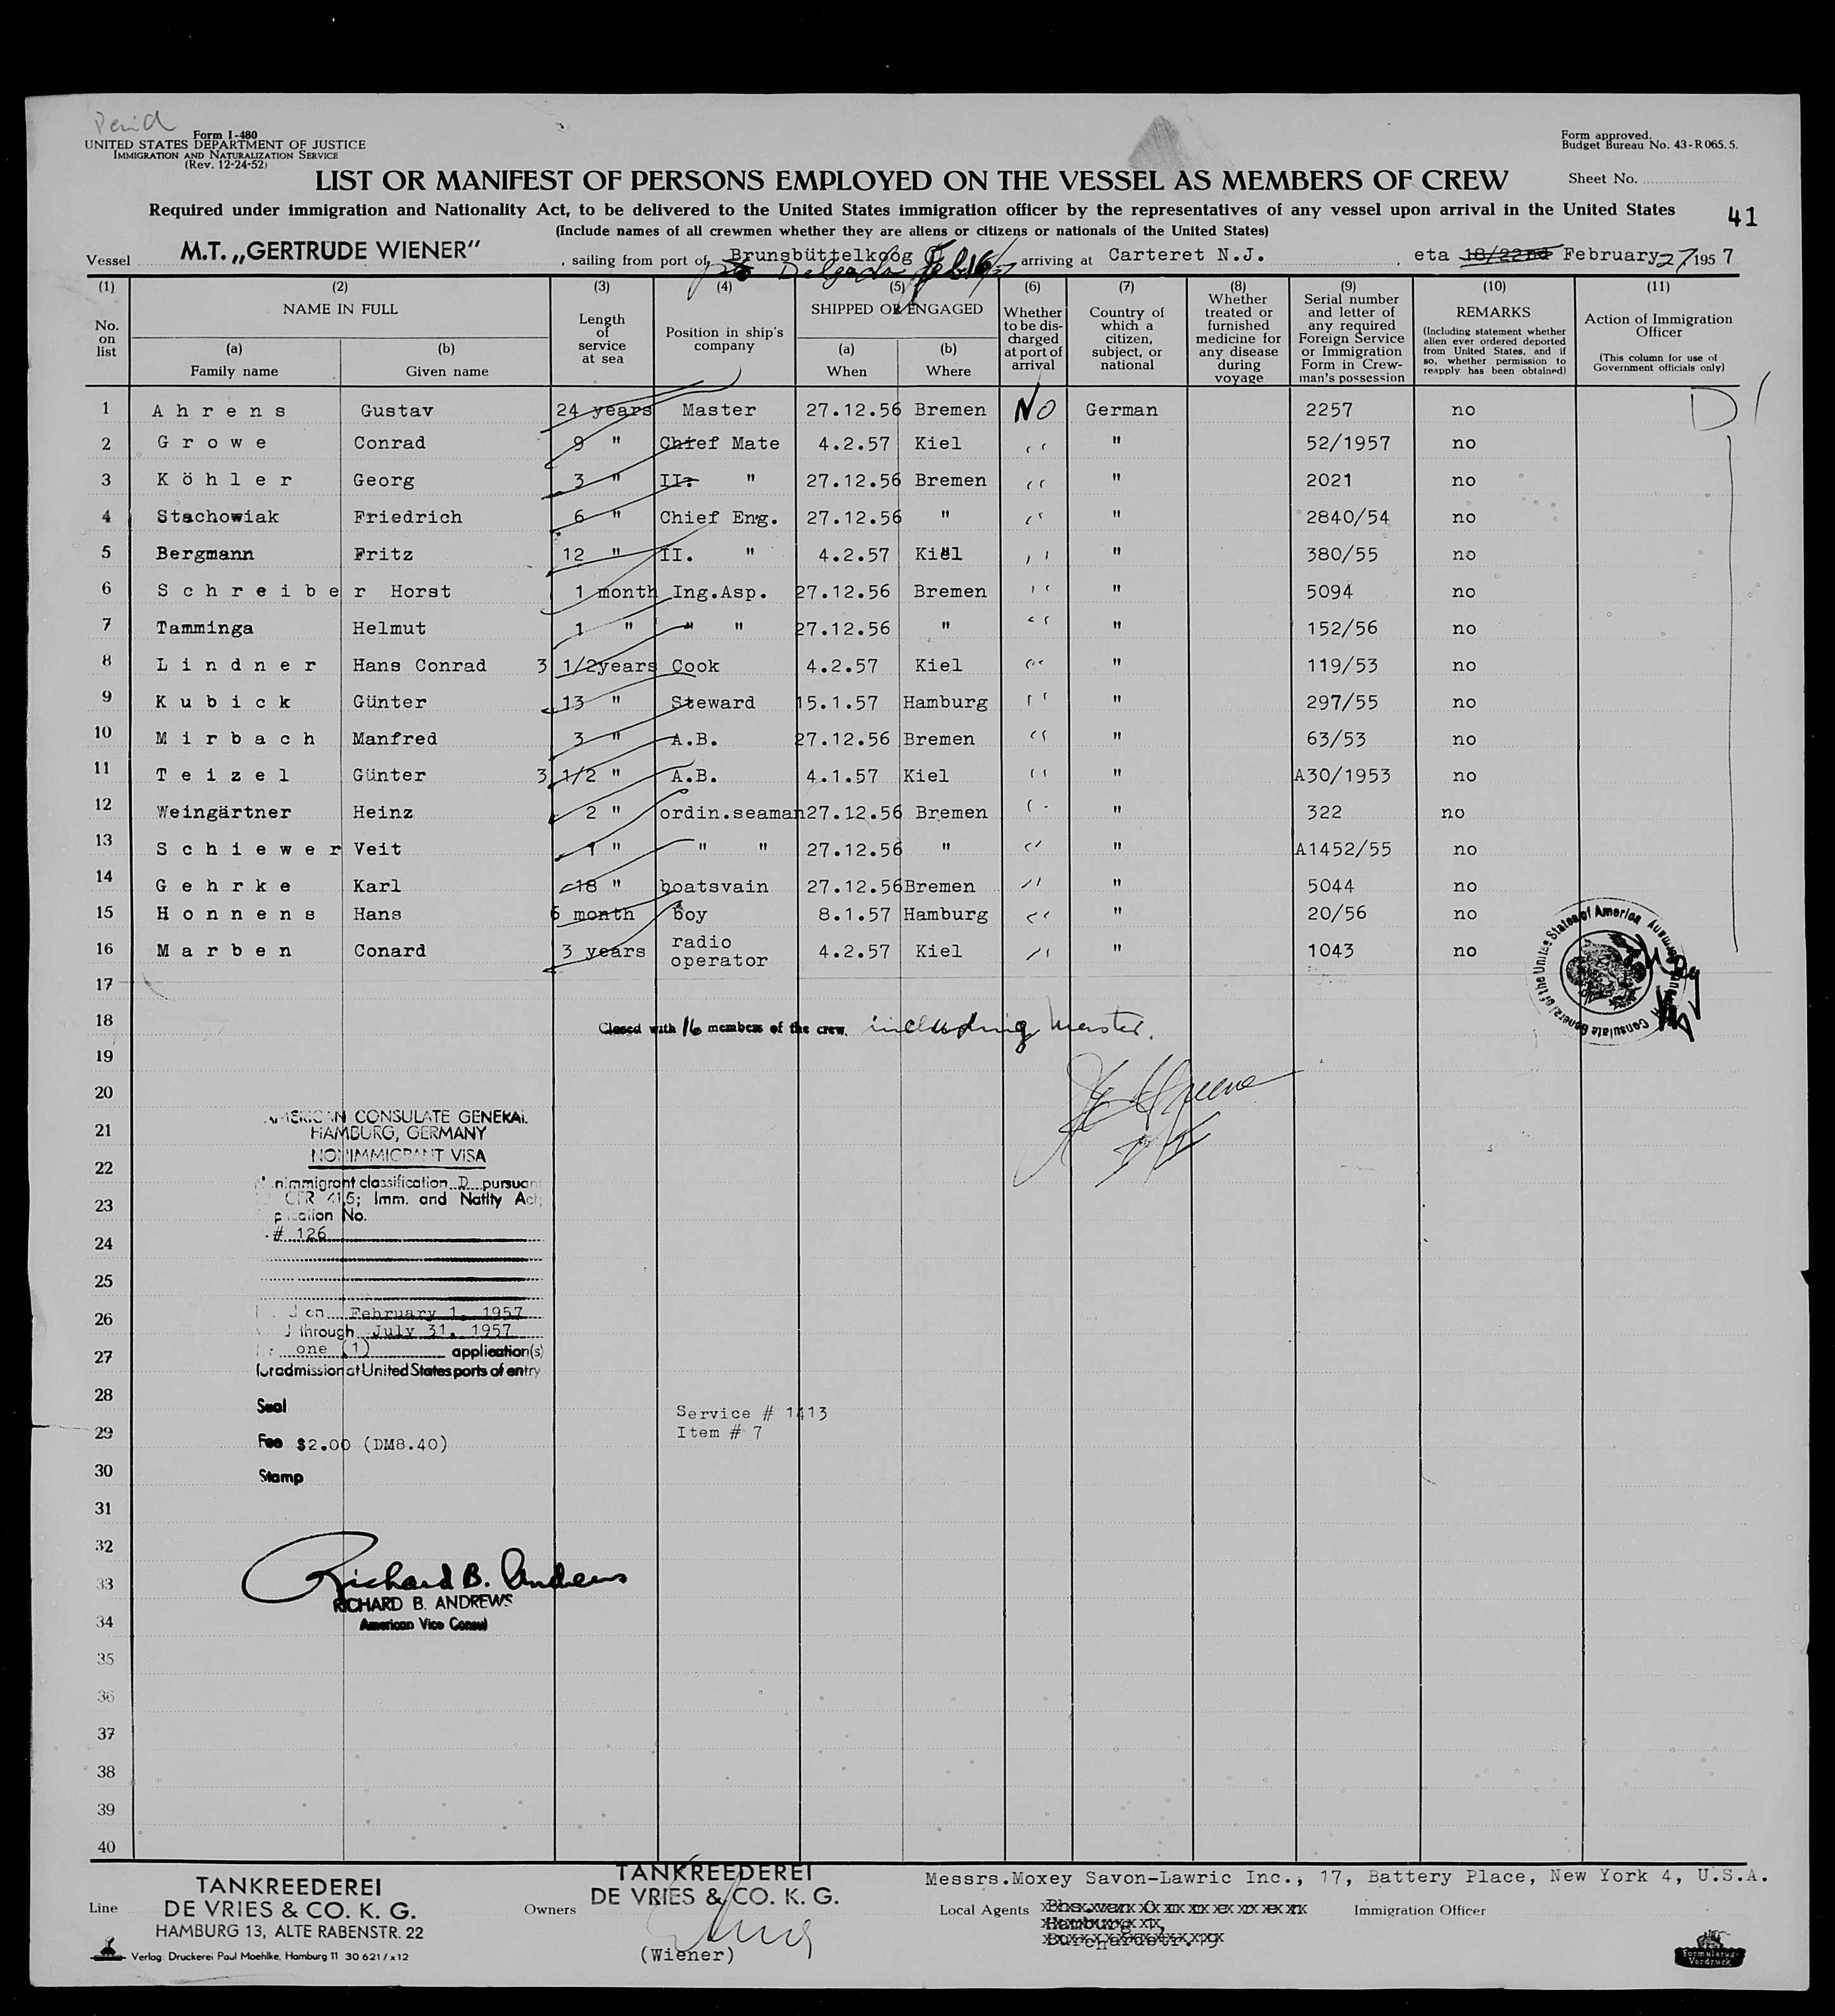 Form I-480
UNITED STATES DEPARTMENT OF JUSTICE
IMMIGRATION AND NATURALIZATION SERVICE
(Rev. 12-24-52)
Form approved.
Budget Bureau No. 43-R065.5.
LIST OR MANIFEST OF PERSONS EMPLOYED ON THE VESSEL AS MEMBERS OF CREW
Sheet No.
Required under immigration and Nationality Act, to be delivered to the United States immigration officer by the representatives of any vessel upon arrival in the United States
41
(Include names of all crewmen whether they are aliens or citizens or nationals of the United States)
Vessel M.T. „GERTRUDE WIENER" , sailing from port of Brunsbüttelkoog arriving at Carteret N.J. , eta 18/22nd February 27, 1957
Delgada Feb 16/57
(1) (2) (3) (4) (5) (6) (7) (8) (9) (10) (11)
No. on list
NAME IN FULL
(a) Family name
(b) Given name
Length of service at sea
Position in ship's company
SHIPPED OR ENGAGED
(a) When
(b) Where
Whether to be discharged at port of arrival
Country of which a citizen, subject, or national
Whether treated or furnished medicine for any disease during voyage
Serial number and letter of any required Foreign Service or Immigration Form in Crewman's possession
REMARKS
(Including statement whether alien ever ordered deported from United States, and if so, whether permission to reapply has been obtained)
Action of Immigration Officer
(This column for use of Government officials only)
1 Ahrens Gustav 24 years Master 27.12.56 Bremen No German 2257 no D1
2 Growe Conrad 9 " Chief Mate 4.2.57 Kiel " " 52/1957 no
3 Köhler Georg 3 " II. " 27.12.56 Bremen " " 2021 no
4 Stachowiak Friedrich 6 " Chief Eng. 27.12.56 " " " 2840/54 no
5 Bergmann Fritz 12 " II. " 4.2.57 Kiel " " 380/55 no
6 Schreiber Horst 1 month Ing.Asp. 27.12.56 Bremen " " 5094 no
7 Tamminga Helmut 1 " " " 27.12.56 " " " 152/56 no
8 Lindner Hans Conrad 3 1/2years Cook 4.2.57 Kiel " " 119/53 no
9 Kubick Günter 13 " Steward 15.1.57 Hamburg " " 297/55 no
10 Mirbach Manfred 3 " A.B. 27.12.56 Bremen " " 63/53 no
11 Teizel Günter 3 1/2 " A.B. 4.1.57 Kiel " " A30/1953 no
12 Weingärtner Heinz 2 " ordin.seaman 27.12.56 Bremen " " 322 no
13 Schiewer Veit 1 " " " 27.12.56 " " " A1452/55 no
14 Gehrke Karl 18 " boatsvain 27.12.56 Bremen " " 5044 no
15 Honnens Hans 6 month boy 8.1.57 Hamburg " " 20/56 no
16 Marben Conard 3 years radio operator 4.2.57 Kiel " " 1043 no
17
18 Closed with 16 members of the crew. including Master.
19
20
21
22
23
24
25
26
27
28
29
30
31
32
33
34
35
36
37
38
39
40
Consulate General of the United States of America
AMERICAN CONSULATE GENERAL
HAMBURG, GERMANY
NONIMMIGRANT VISA
Nonimmigrant classification D pursuant
CFR 41.5; Imm. and Natlty Act;
plication No.
# 126
on February 1, 1957
through July 31, 1957
one (1) application(s)
for admission at United States ports of entry
Seal
Fee $2.00 (DM8.40)
Stamp
Service # 1413
Item # 7
Richard B. Andrews
RICHARD B. ANDREWS
American Vice Consul
Line
TANKREEDEREI
DE VRIES & CO. K. G.
HAMBURG 13, ALTE RABENSTR. 22
Owners
TANKREEDEREI
DE VRIES & CO. K. G.
(Wiener)
Messrs.Moxey Savon-Lawric Inc., 17, Battery Place, New York 4, U.S.A.
Local Agents
Immigration Officer
Verlag: Druckerei Paul Moehlke, Hamburg 11 30 621/x12
Formularus-Vordruck